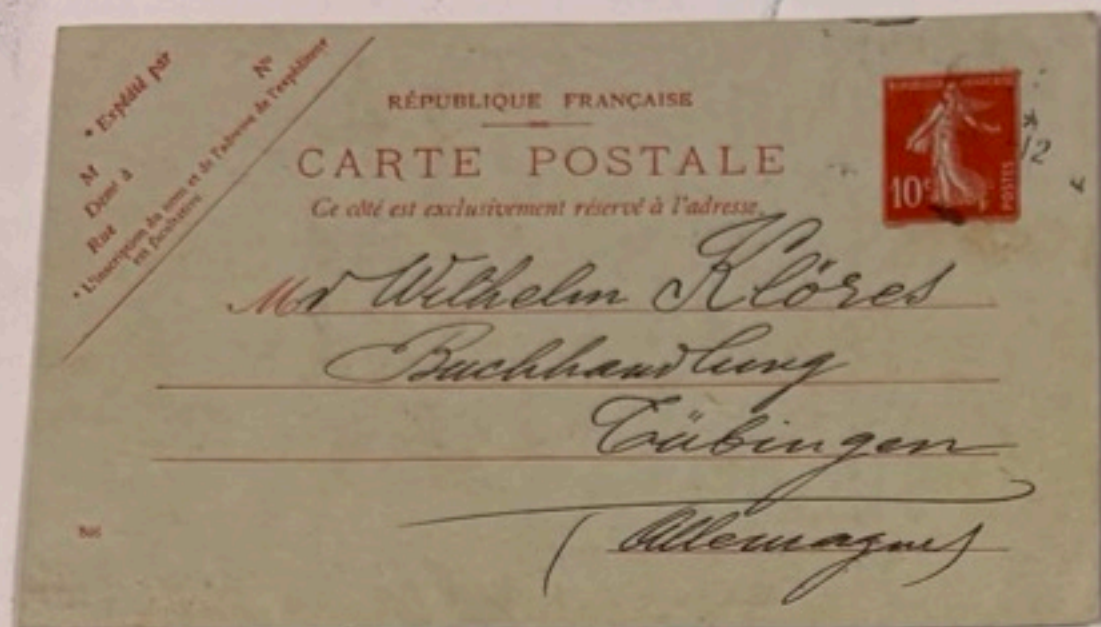 * Expédié par
M
Demt à
Rue
N°
* L'inscription du nom et de l'adresse de l'expéditeur
est facultative
RÉPUBLIQUE FRANÇAISE
CARTE POSTALE
Ce côté est exclusivement réservé à l'adresse.
10c
POSTES
12
Mr Wilhelm Klöres
Buchhandlung
Tübingen
(Allemagne)